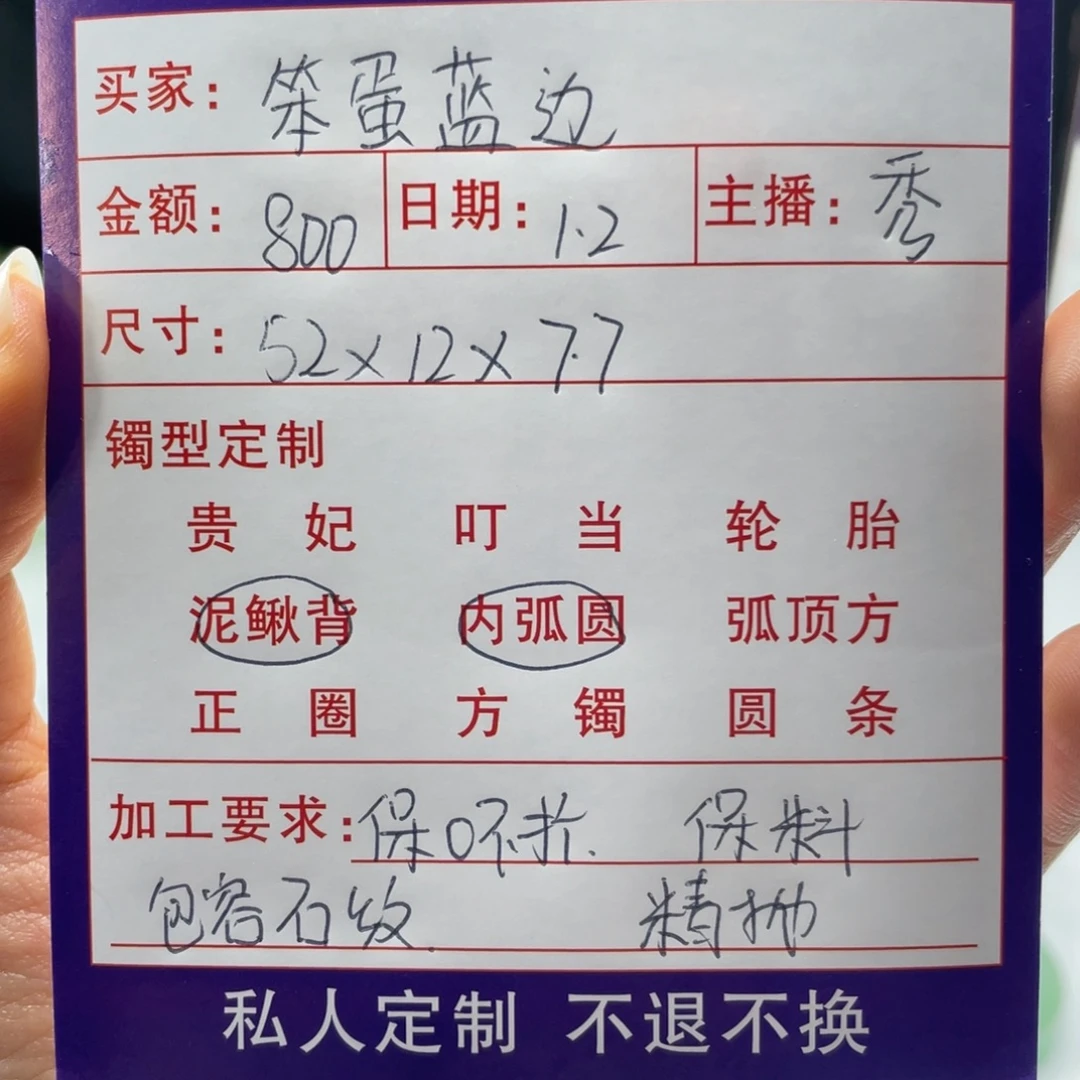 买家：笨蛋蓝边
金额：800 日期：1.2 主播：秀
尺寸：52×12×7.7
镯型定制
贵妃 叮当 轮胎
泥鳅背 内弧圆 弧顶方
正圈 方镯 圆条
加工要求：保口不扩. 保料
包容石纹. 精抛
私人定制 不退不换